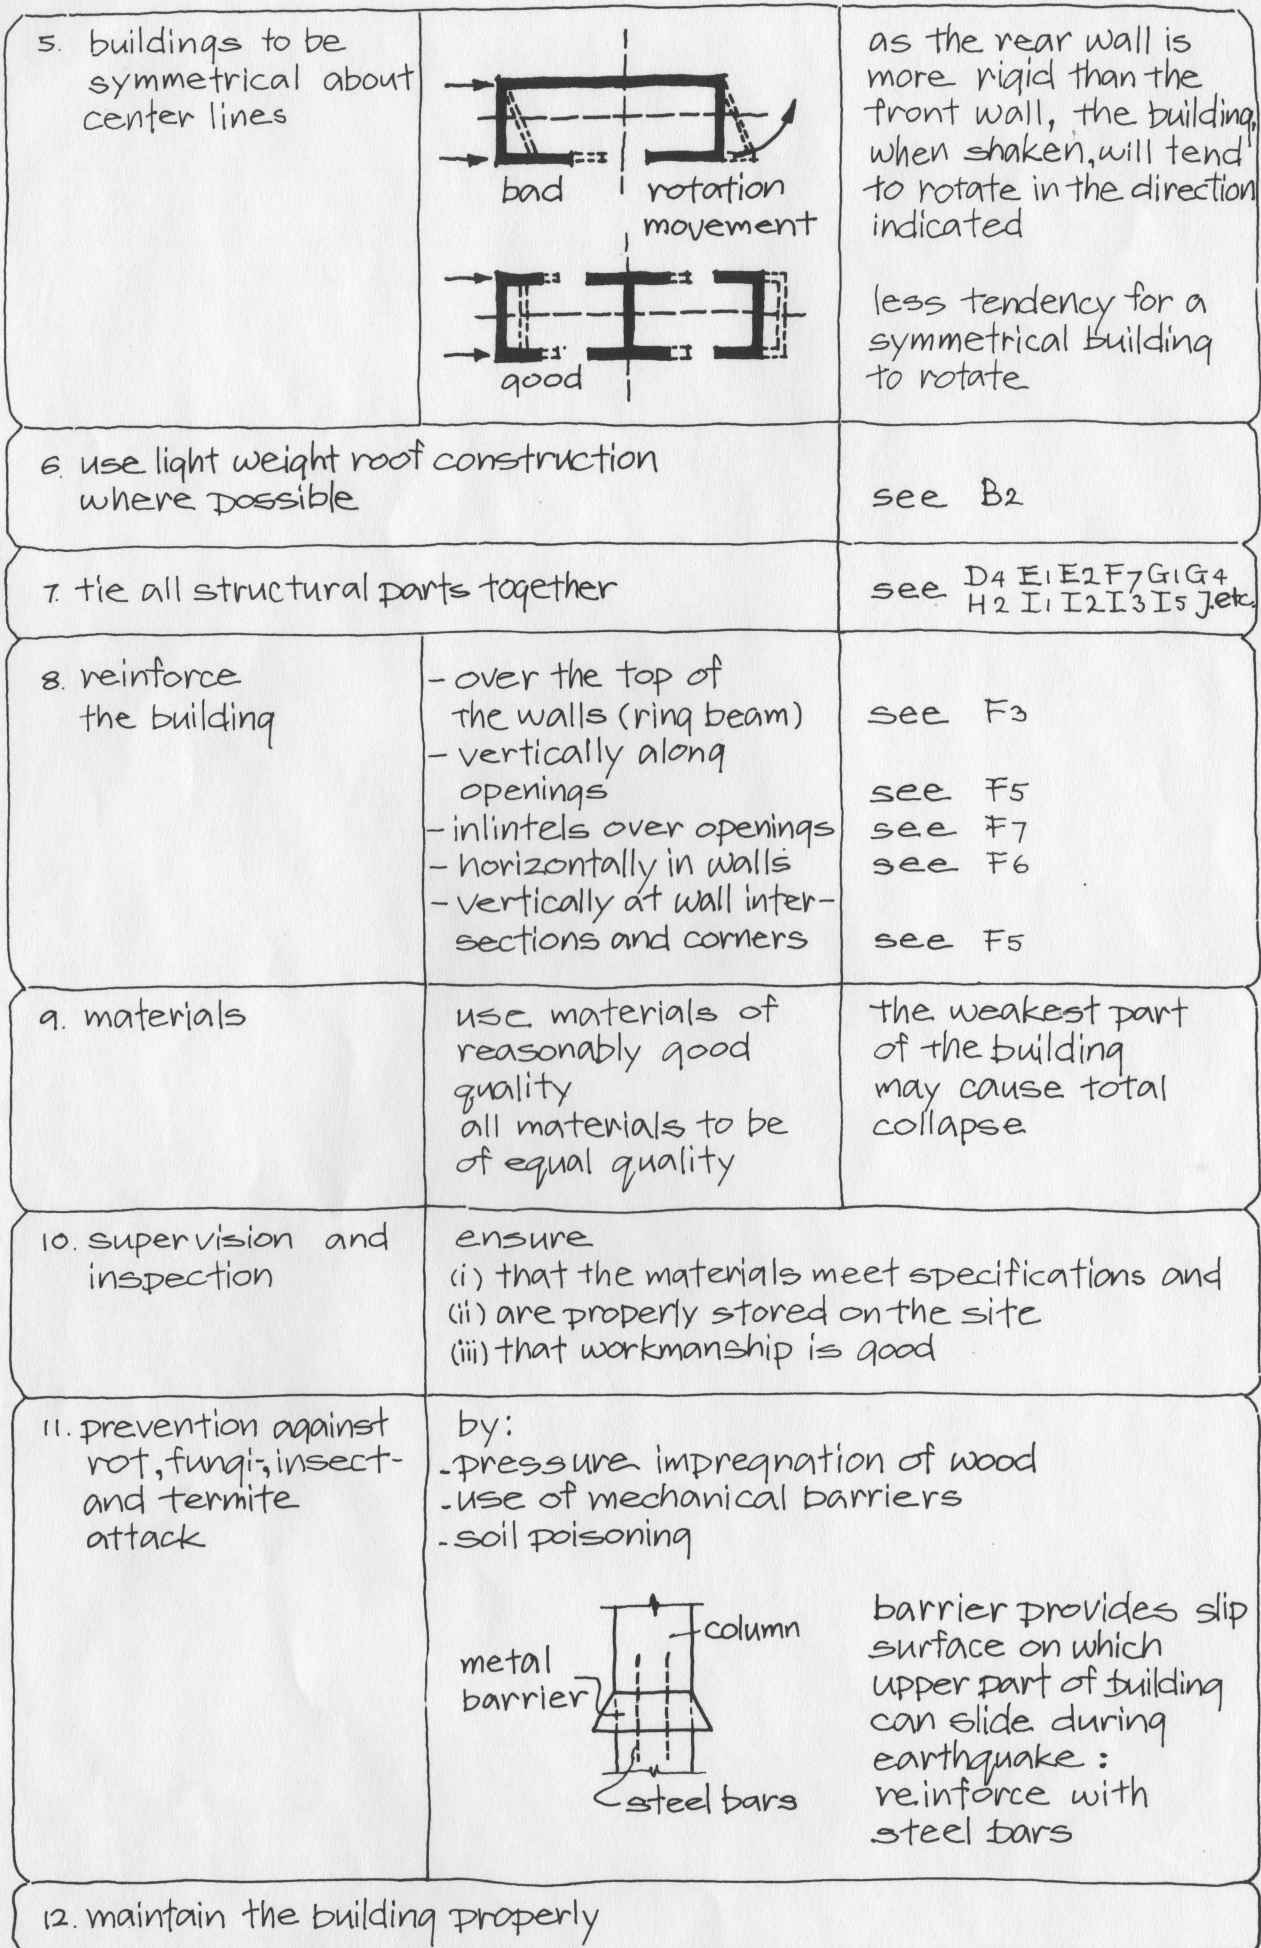 5. buildings to be
symmetrical about
center lines
bad
rotation
movement
good
as the rear wall is
more rigid than the
front wall, the building,
when shaken, will tend
to rotate in the direction
indicated
less tendency for a
symmetrical building
to rotate
6. use light weight roof construction
where possible
see B2
7. tie all structural parts together
see D4 E1 E2 F7 G1 G4
H2 I1 I2 I3 I5 J.etc.
8. reinforce
the building
- over the top of
the walls (ring beam)
see F3
- vertically along
openings
see F5
- inlintels over openings
see F7
- horizontally in walls
see F6
- vertically at wall inter-
sections and corners
see F5
9. materials
use materials of
reasonably good
quality
all materials to be
of equal quality
the weakest part
of the building
may cause total
collapse
10. supervision and
inspection
ensure
(i) that the materials meet specifications and
(ii) are properly stored on the site
(iii) that workmanship is good
11. prevention against
rot, fungi-, insect-
and termite
attack
by:
- pressure impregnation of wood
- use of mechanical barriers
- soil poisoning
column
metal
barrier
steel bars
barrier provides slip
surface on which
upper part of building
can slide during
earthquake :
reinforce with
steel bars
12. maintain the building properly